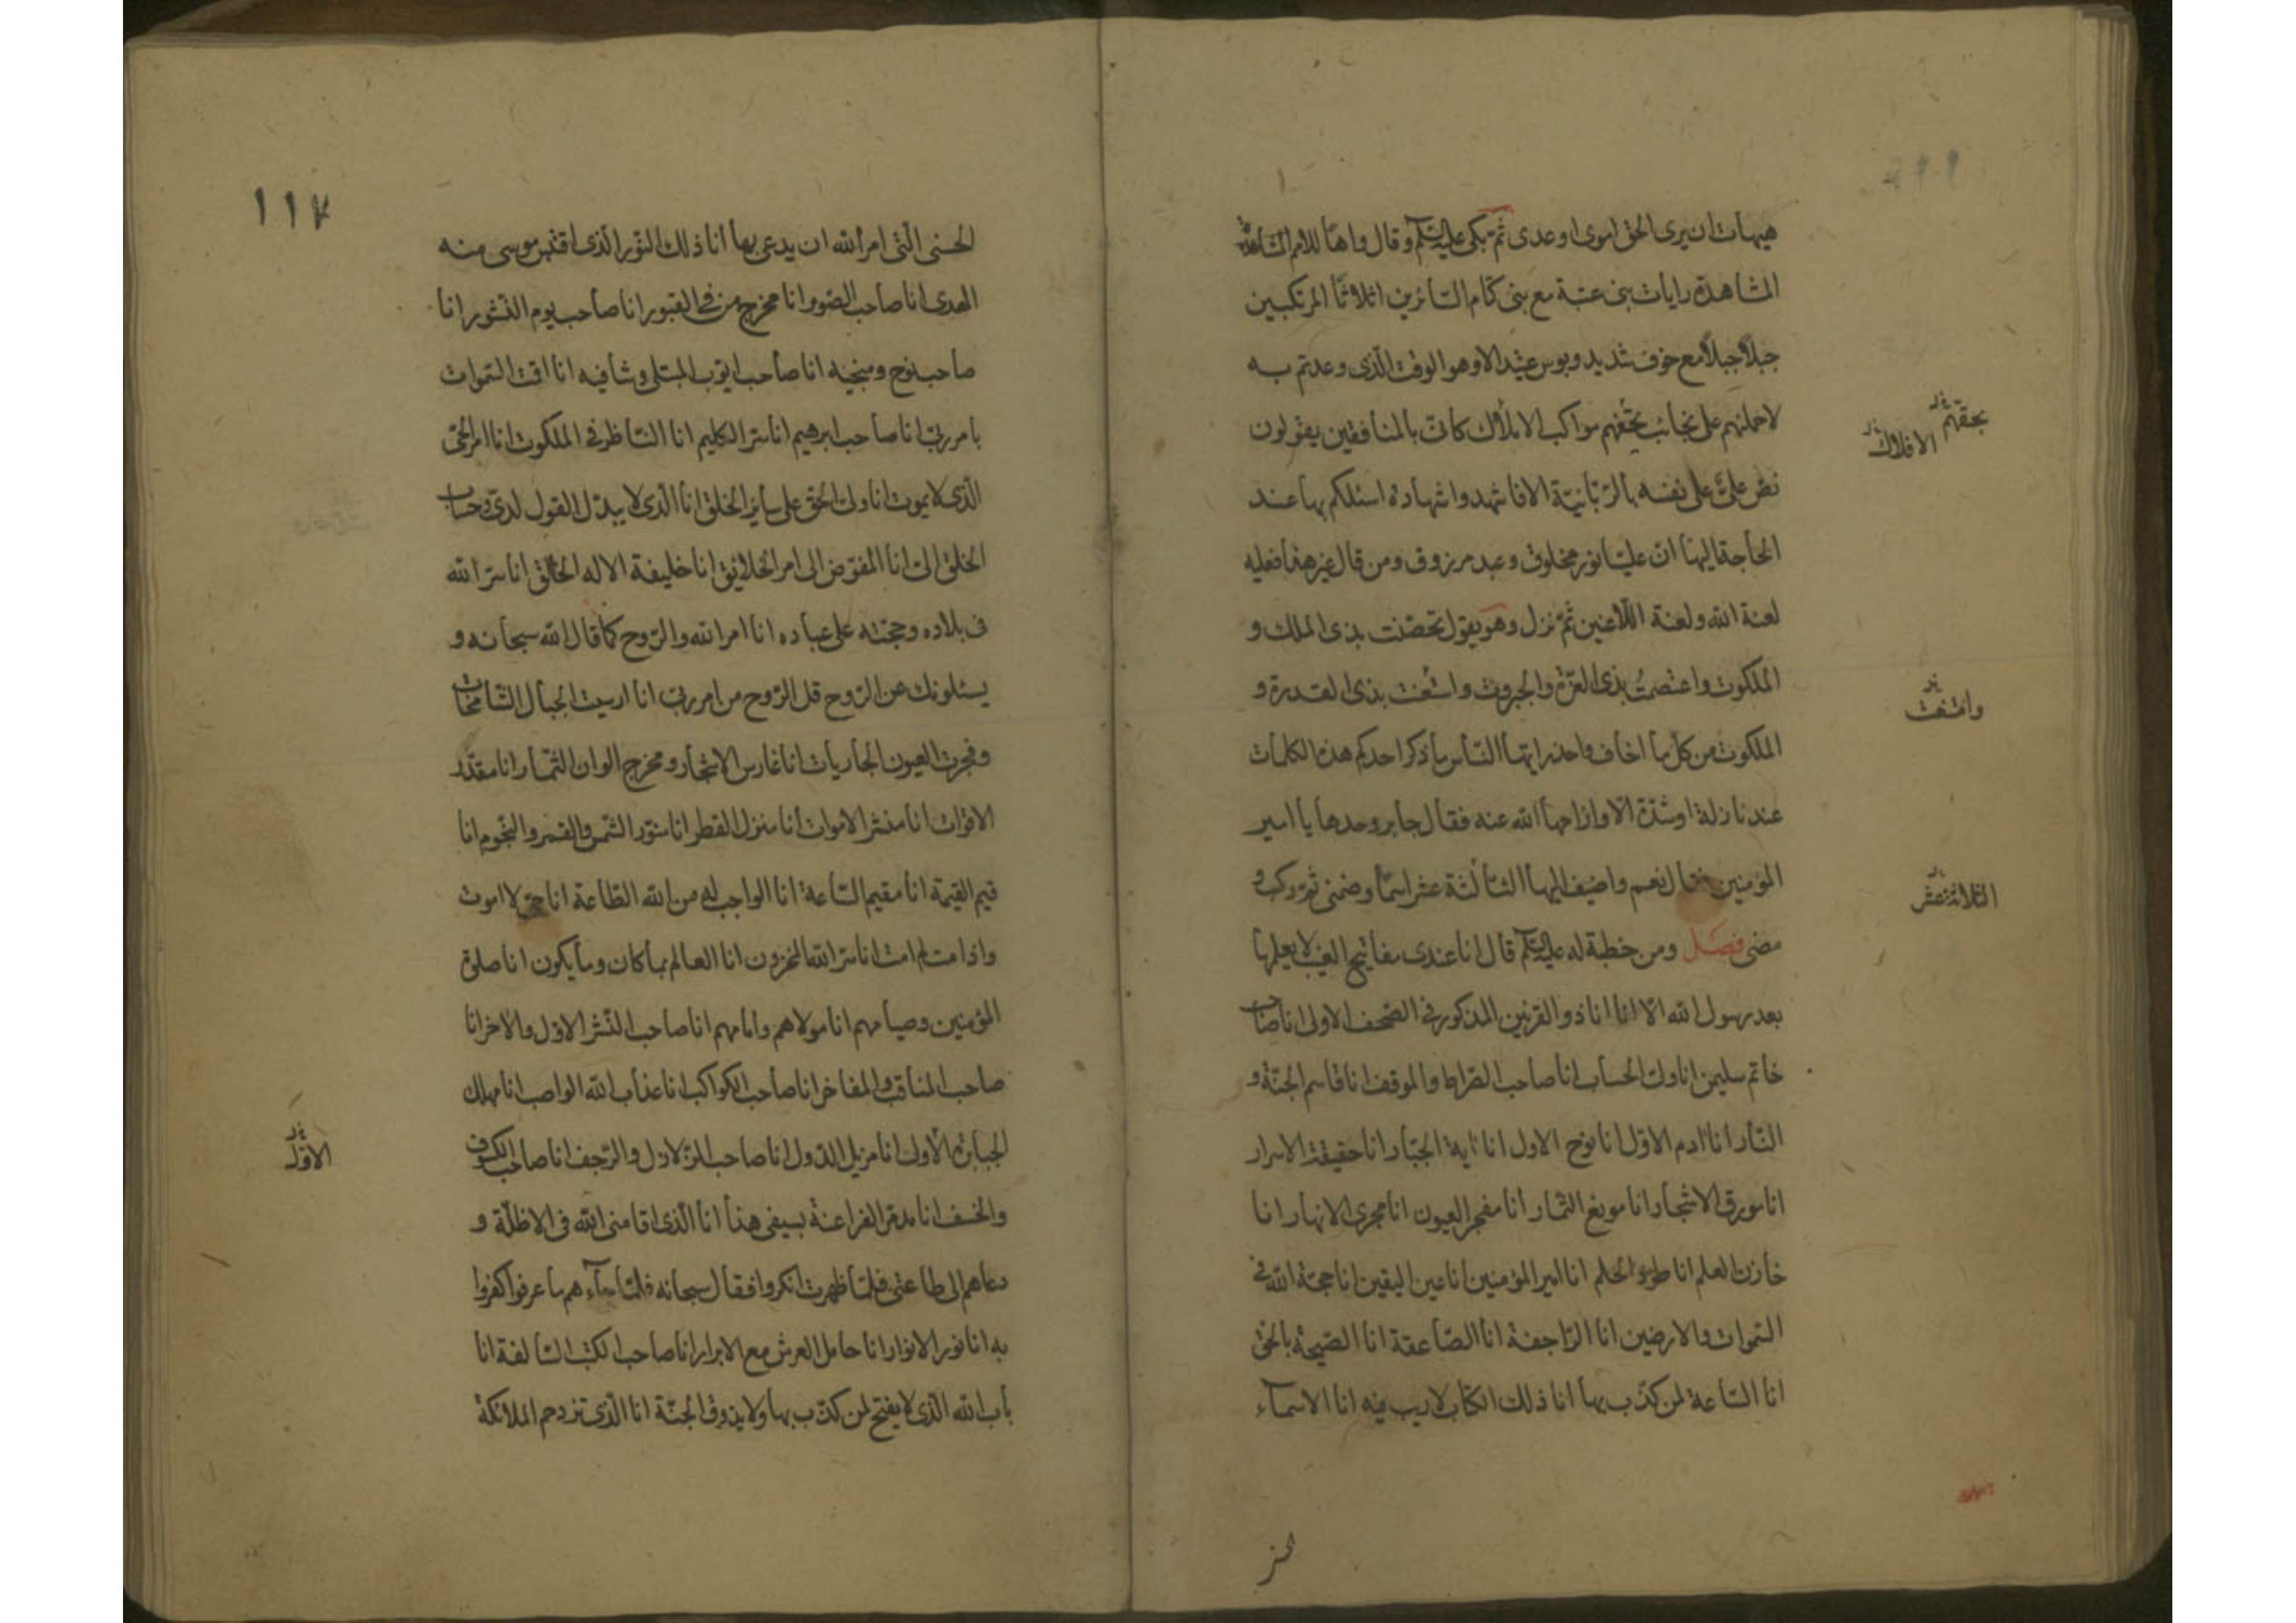 هيهات ان يرى الحق اموى او عدى ثم بكى عليه السلام وقال واها للامم
المشاهدة رايات بنى عتبة مع بنى كنام السائرين اثلاثا المرتكبين
جبلا جبلا مع خوف شديد وبوس عتيد الا وهو الوقت الذى وعدتم به
لاحملنهم على نجائب تحفهم مواكب الاملاك كانى بالمنافقين يقولون
نص على على نفسه بالربانية الا فاشهدوا شهادة اسئلكم بها عند
الحاجة اليها ان عليا نور مخلوق وعبد مرزوق ومن قال غير هذا فعليه
لعنة الله ولعنة اللاعنين ثم نزل وهو يقول تحصنت بذى الملك و
الملكوت واعتصمت بذى العزة والجبروت واستعنت بذى القدرة و
الملكوت من كل ما اخاف واحذر ايها الناس ما ذكر احدكم هذه الكلمات
عند نازلة او شدة الا وازاحها الله عنه فقال جابر وحدها يا امير
المؤمنين فقال نعم واضيف اليها الثالثة عشر اسما وضمنى ثم ركب و
مضى فصل ومن خطبة له عليه السلام قال انا عندى مفاتيح الغيب لا يعلمها
بعد رسول الله الا انا انا ذو القرنين المذكور فى الصحف الاولى انا صاحب
خاتم سليمن انا ولى الحساب انا صاحب الصراط والموقف انا قاسم الجنة و
النار انا ادم الاول انا نوح الاول انا اية الجبار انا حقيقة الاسرار
انا مورق الاشجار انا مونع الثمار انا مفجر العيون انا مجرى الانهار انا
خازن العلم انا طور الحلم انا امير المؤمنين انا عين اليقين انا حجة الله فى
السموات والارضين انا الراجفة انا الصاعقة انا الصيحة بالحق
انا الساعة لمن كذب بها انا ذلك الكتاب لا ريب فيه انا الاسماء
الافلاك
وامتنعت
الثلاثة عشر
١١٧
الحسنى التى امر الله ان يدعى بها انا ذلك النور الذى اقتبس موسى منه
الهدى انا صاحب الصور انا مخرج من فى القبور انا صاحب يوم النشور انا
صاحب نوح ومنجيه انا صاحب ايوب المبتلى وشافيه انا اقت السموات
بامر ربى انا صاحب ابرهيم انا سر الكليم انا الناظر فى الملكوت انا امر الحى
الذى لا يموت انا ولى الحق على سائر الخلق انا الذى لا يبدل القول لدى وحساب
الخلق الى انا المفوض الى امر الخلائق انا خليفة الاله الخالق انا سر الله
فى بلاده وحجته على عباده انا امر الله والروح كما قال الله سبحانه و
يسئلونك عن الروح قل الروح من امر ربى انا ارسيت الجبال الشامخات
وفجرت العيون الجاريات انا غارس الاشجار ومخرج الوان الثمار انا مقدر
الاقوات انا منشر الاموات انا منزل القطر انا منور الشمس والقمر والنجوم انا
قيم القيمة انا مقيم الساعة انا الواجب له من الله الطاعة انا حى لا اموت
واذا مت لم امت انا سر الله المخزون انا العالم بما كان وما يكون انا صلوة
المؤمنين وصيامهم انا مولاهم وامامهم انا صاحب النشر الاول والاخر انا
صاحب المناقب والمفاخر انا صاحب الكواكب انا عذاب الله الواصب انا مهلك
الجبابرة الاولى انا مزيل الدول انا صاحب الزلازل والرجف انا صاحب الكسوف
والخسف انا مدمر الفراعنة بسيفى هذا انا الذى اقامنى الله فى الاظلة و
دعاهم الى طاعتى فلما ظهرت انكروا فقال سبحانه فلما جاءهم ما عرفوا كفروا
به انا نور الانوار انا حامل العرش مع الابرار انا صاحب الكتب السالفة انا
باب الله الذى لا يفتح لمن كذب بها ولا يذوق الجنة انا الذى تزدحم الملائكة
الاول